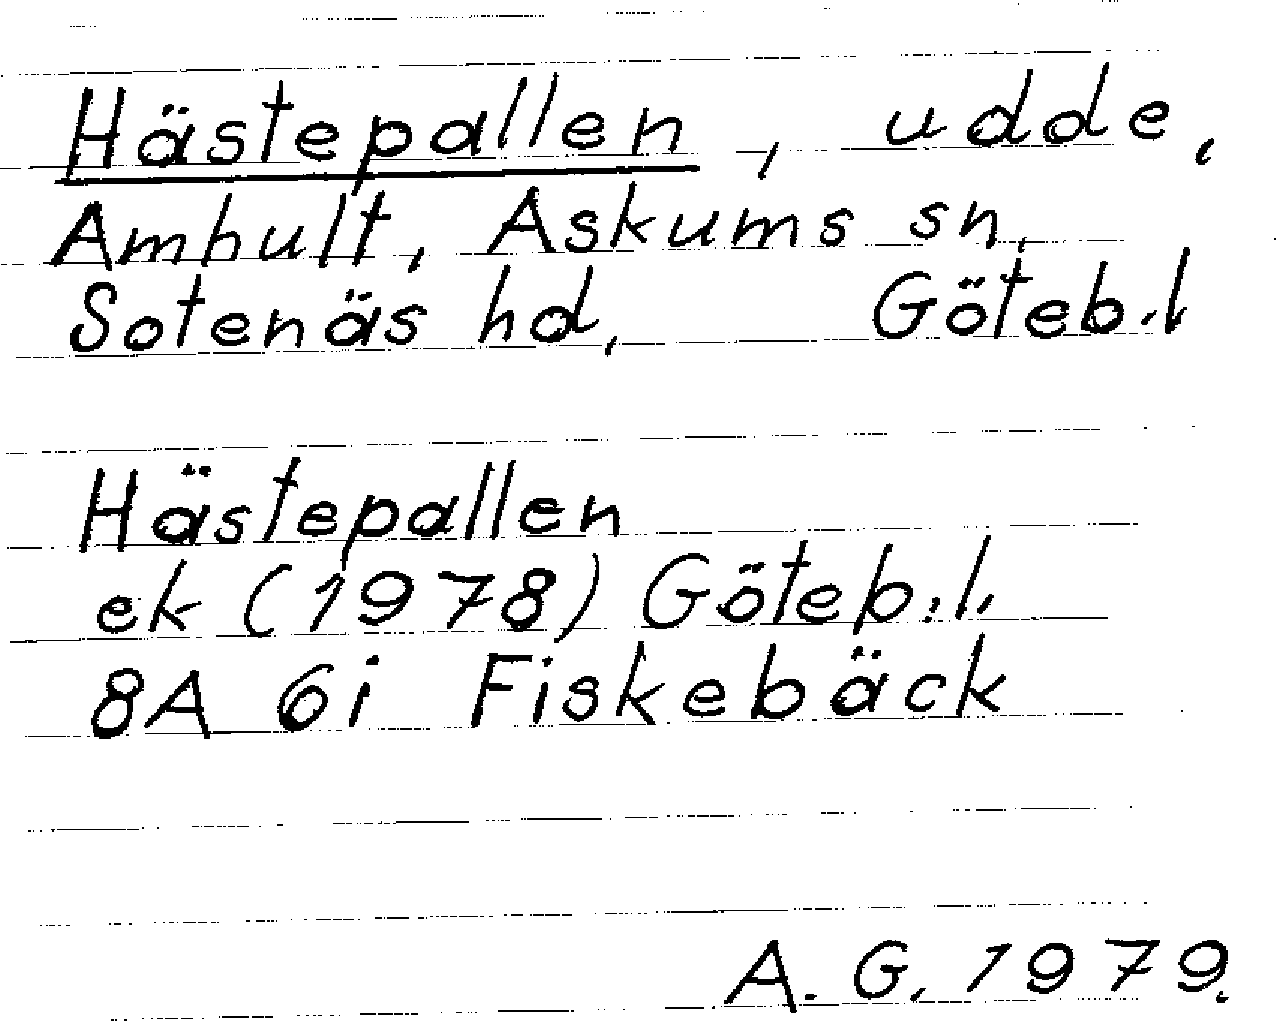 Hästepallen, udde,
Amhult, Askums sn,
Sotenäs hd, Göteb.l
Hästepallen
ek (1978) Göteb.l.
8A 6i Fiskebäck
A. G. 1979.